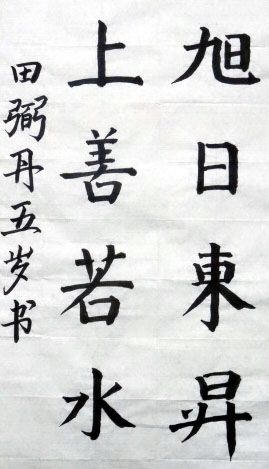 旭日東昇
上善若水
田弼丹五岁书